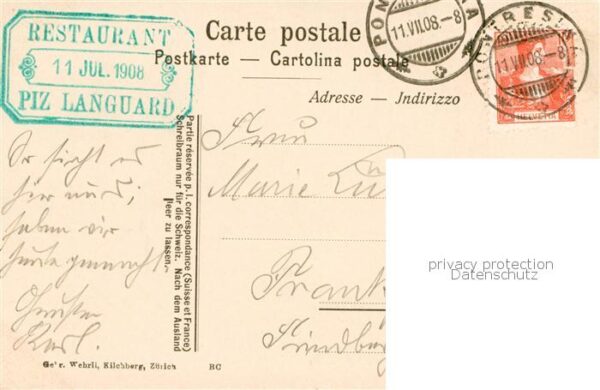 RESTAURANT
11 JUL. 1908
PIZ LANGUARD
Carte postale
Postkarte — Cartolina postale
Adresse — Indirizzo
PONTRESINA
11.VII.08.–8
PONTRESINA
11.VII.08.–8
HELVETIA
Partie réservée p. l. correspondance (Suisse et France)
Schreibraum nur für die Schweiz. Nach dem Ausland
leer zu lassen.
So sieht es
hier aus;
haben wir
heute gemacht
Karl.
Frau
Marie
Frank
privacy protection
Datenschutz
Gebr. Wehrli, Kilchberg, Zürich
BC